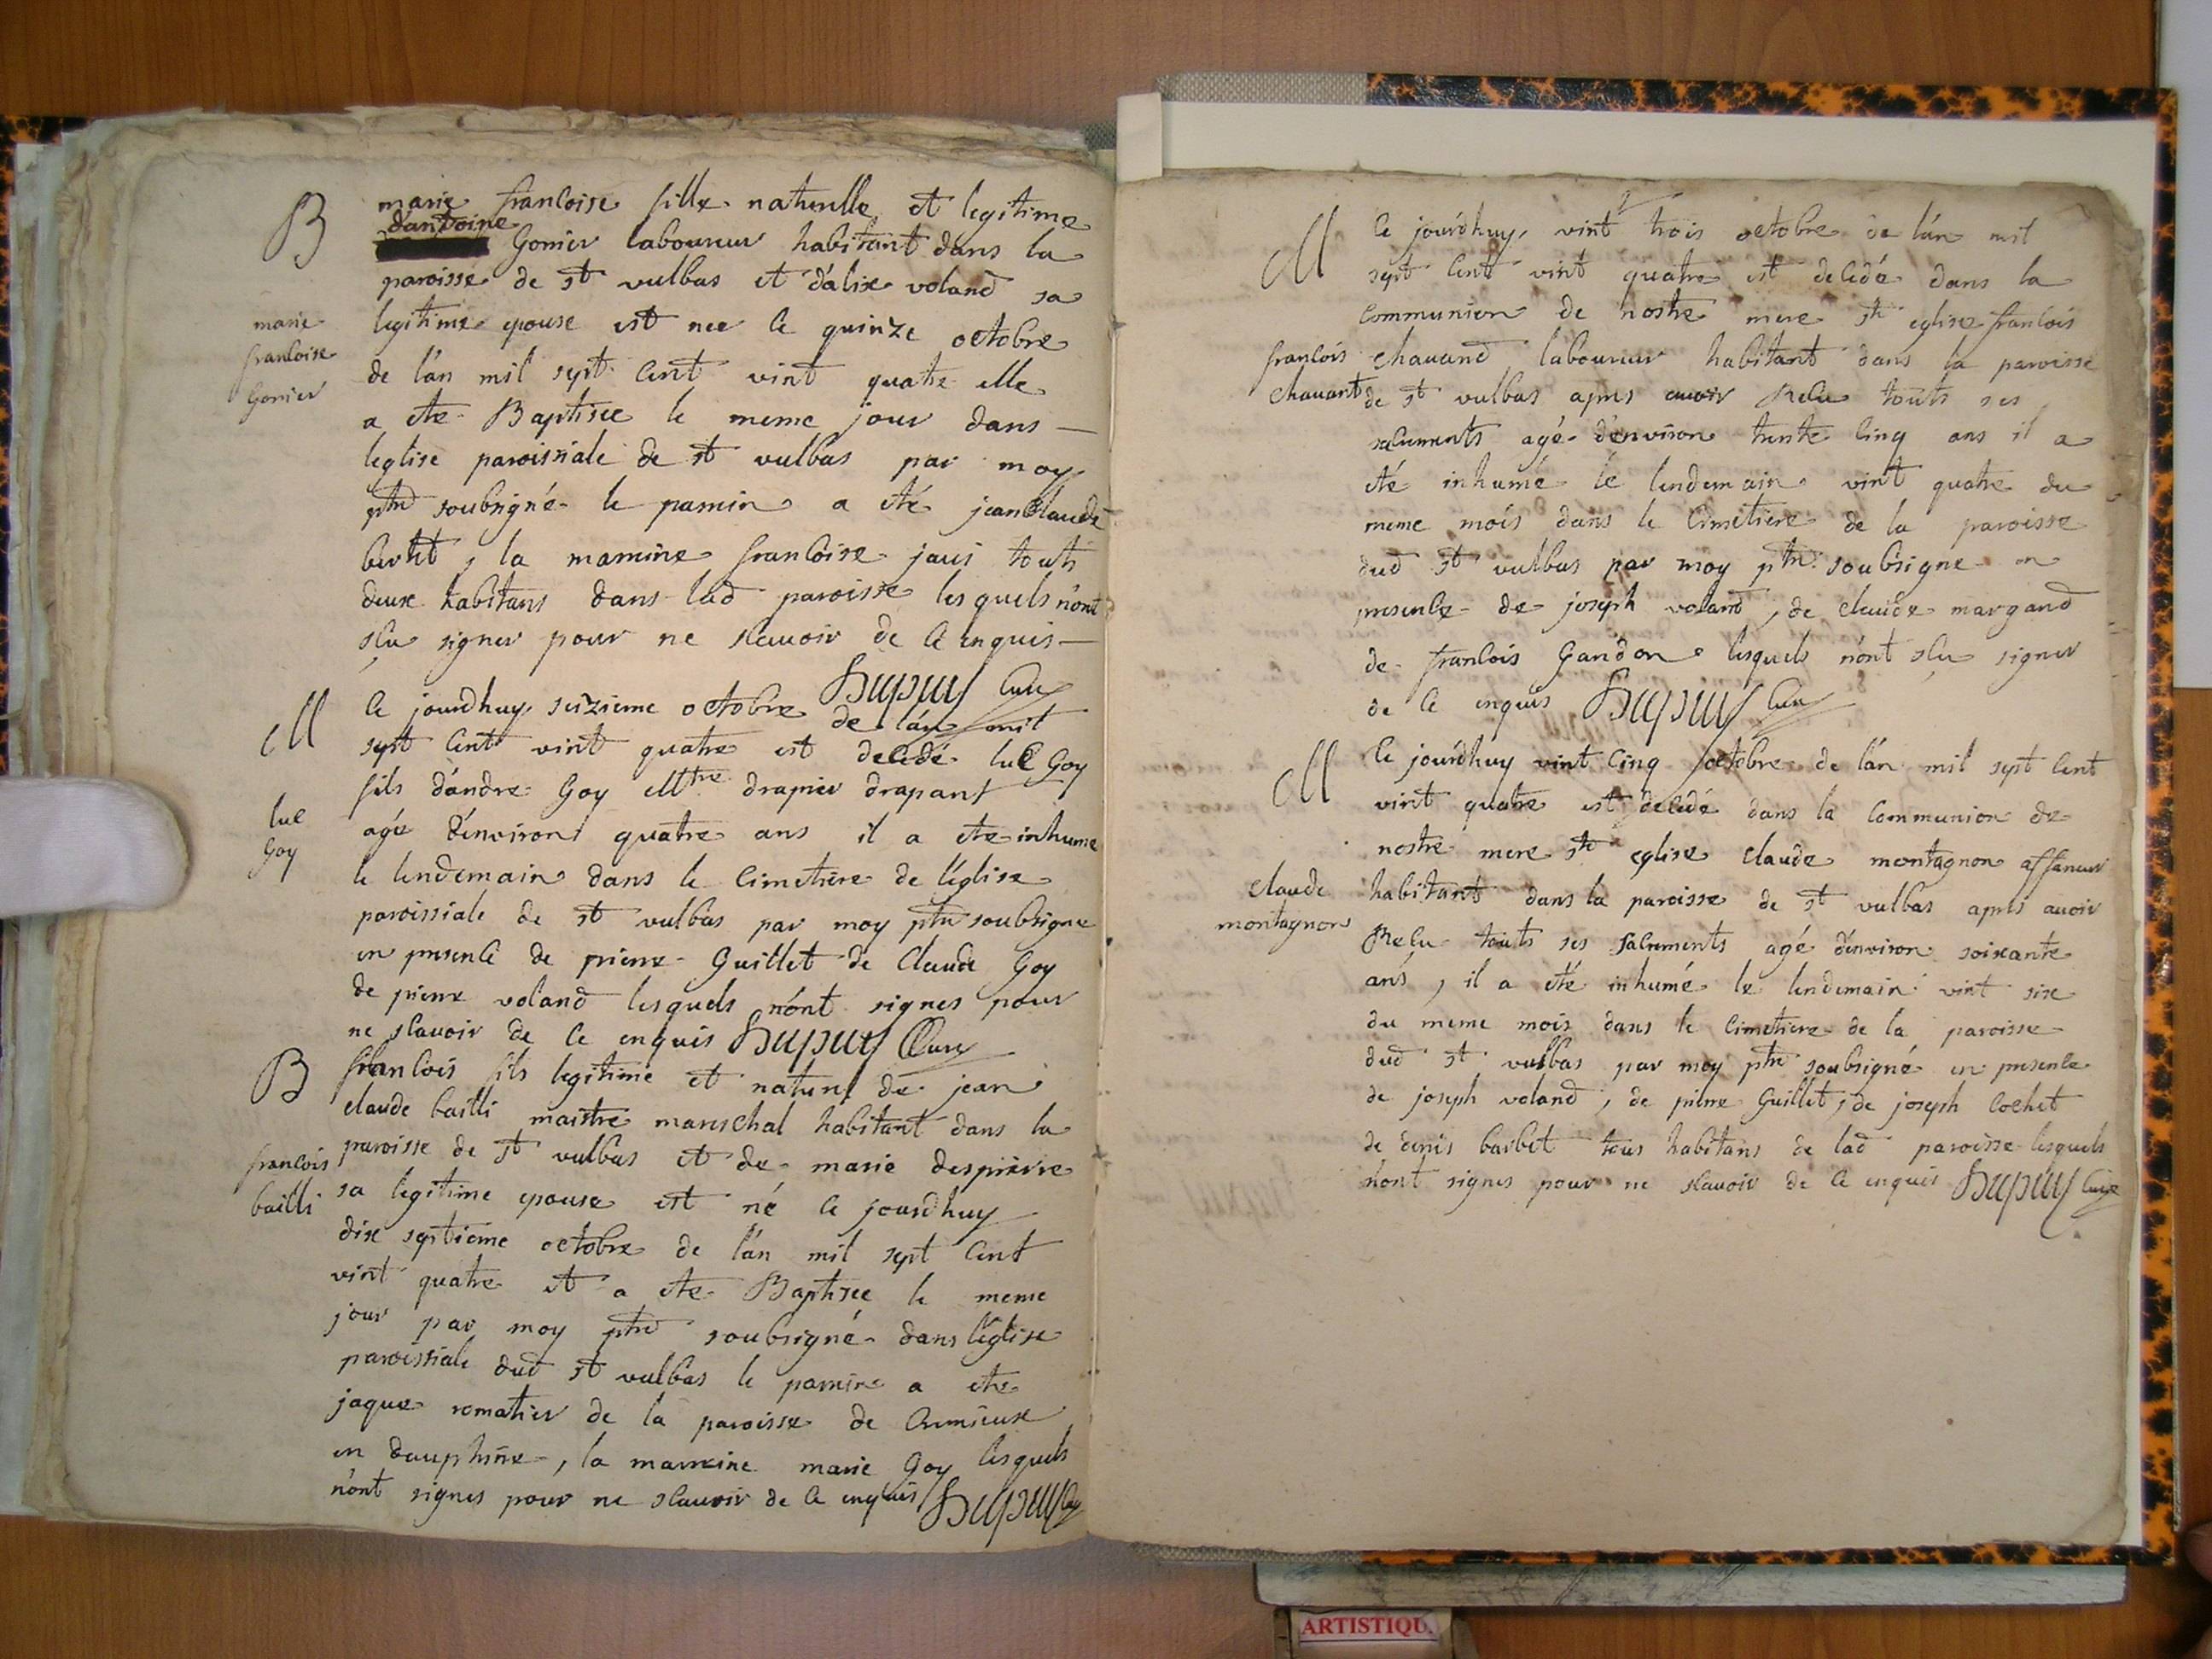 B
marie francoise fille naturelle et legitime
dantoine
Gonier laboureur habitant dans la
paroisse de st vulbas et d'alix voland sa
marie
francoise
Gonier
legitime epouse est nee le quinze octobre
de l'an mil sept cent vint quatre elle
a ete Baptisee le meme jour dans
leglise paroissiale de st vulbas par moy
ptre soubsigné le parrin a eté jean Claude
bertet, la marrine francoise jaii touts
deux habitans dans lad paroisse lesquels n'ont
sçu signer pour ne sçauoir de ce enquis
Dupuy Curé
M
ce jourdhuy seizieme octobre de l'an mil
sept cent vint quatre est decedé luc Goy
fils d'andre Goy Mtre drapier drapant
luc
Goy
agé d'environ quatre ans il a ete inhume
le lendemain dans le cimetiere de l'eglise
paroissiale de st vulbas par moy ptre soubsigne
en presence de pierre Guillet de Claude Goy
de pierre voland lesquels n'ont signes pour
ne sçauoir de ce enquis Dupuy Curé
B
francois fils legitime et naturel de jean
claude bailli maistre mareschal habitant dans la
francois
bailli
paroisse de st vulbas et de marie despierre
sa legitime epouse est né ce jourdhuy
dix septieme octobre de l'an mil sept cent
vint quatre et a ete Baptisee le meme
jour par moy ptre soubsigné dans l'eglise
paroissiale dud st vulbas le parrin a ete
jaque romatier de la paroisse de Cremieux
en dauphine, la marreine marie Goy lesquels
n'ont signes pour ne sçauoir de ce enquis Dupuy Curé
M
ce jourdhuy vint trois octobre de l'an mil
sept cent vint quatre est decedé dans la
communion de nostre mere ste eglise francois
francois
chauant
chauand laboureur habitant dans la paroisse
de st vulbas apres auoir Recu touts ses
sacrements agé d'environ trente cinq ans il a
eté inhumé le lendemain vint quatre du
meme mois dans le cimetiere de la paroisse
dud st vulbas par moy ptre soubsigne en
presence de joseph voland, de claude margand
de francois Gandon lesquels n'ont sçu signer
de ce enquis Dupuy Curé
M
ce jourdhuy vint cinq octobre de l'an mil sept cent
vint quatre est decedé dans la communion de
nostre mere ste eglise claude montagnon affaneur
claude
montagnon
habitant dans la paroisse de st vulbas apres auoir
Recu touts ses sacrements agé d'environ soixante
ans, il a été inhumé le lendemain vint six
du meme mois dans le cimetiere de la paroisse
dud st vulbas par moy ptre soubsigné en presence
de joseph voland, de pierre Guillet, de joseph Cochet
de denis barbet tous habitans de lad paroisse lesquels
n'ont signes pour ne sçauoir de ce enquis Dupuy Curé
ARTISTIQU